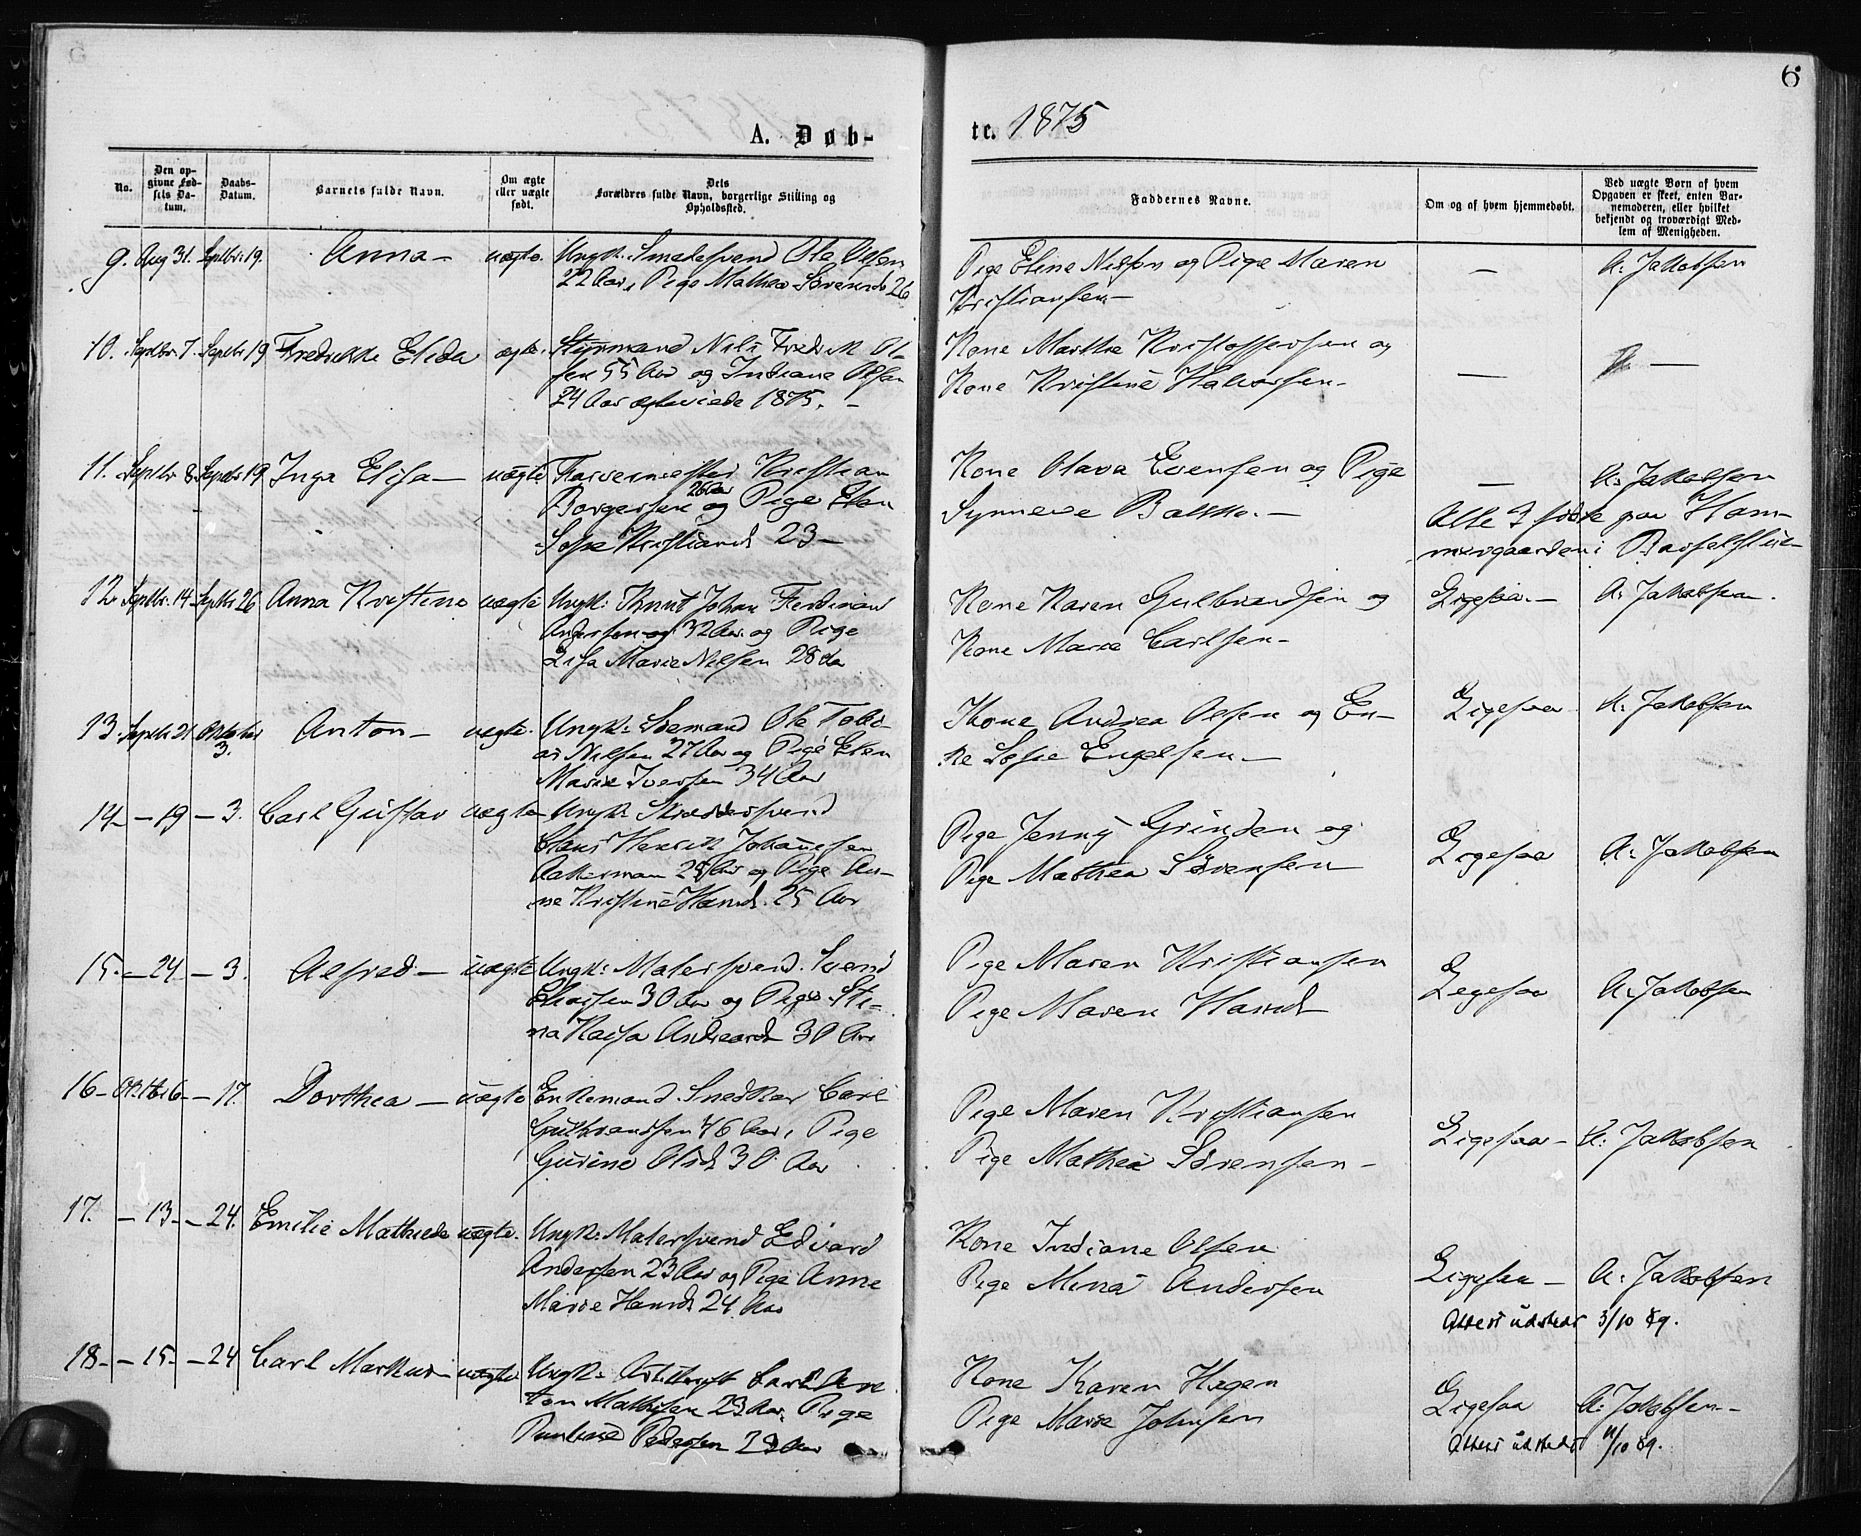 6
A. Døb-
te. 1875
No.
Den op-
givne Fød-
sels Da-
tum.
Daabs-
Datum.
Barnets fulde Navn.
Om ægte
eller uægte
født.
Dets
Forældres fulde Navn, borgerlige Stilling og
Opholdssted.
Faddernes Navne.
Om og af hvem hjemmedøbt.
Ved uægte Børn af hvem
Opgaven er skeet, enten Bar-
nemoderen, eller hvilket
bekjendt og troværdigt Med-
lem af Menigheden.
9. Aug 31. Septbr. 19. Anna — uægte. Ungk: Smedesvend Ole Olsen
22 Aar, Pige Mathea Sørensd 26
Pige Eline Nilsen og Pige Maren
Kristiansen —
—
A: Jakobsen
10. Septbr. 7. Septbr 19 Fredrikke Elida ægte. Styrmand Nils Fredrik Ol-
sen 55 Aar og Indiane Olsen
24 Aar ægteviede 1875. —
Kone Marthe Kristoffersen og
Kone Kristine Halvorsen —
—
—
11. Septbr 8 Septbr 19 Inga Elisa — uægte Farvermester Kristian
Borgersen 26 Aar og Pige Elen
Sofie Kristiansd 23 —
Kone Olava Evensen og Pige
Synneve Bakke. —
—
A: Jakobsen
Alle 3 fødte paa Ham-
mersgaarden i Barselstue
12. Septbr. 14 Septbr 26 Anna Kristine uægte Ungk: Knut Johan Ferdinand
Andersen 32 Aar og Pige
Lisa Marie Nilsen 28 Aar
Kone Karen Gulbrandsen og
Kone Marie Carlsen —
Ligesaa. — A: Jakobsen.
13. Septb 21 Oktober
3. Anton — uægte. Ungk: Sømand Ole Tobi-
as Nilsen 27 Aar og Pige Elen
Marie Iversen 34 Aar
Kone Andrea Olsen og En-
ke Sofie Engelsen —
Ligesaa A: Jakobsen
14 — — 19 — 3. Carl Gustav uægte — Ungk: Skræddersvend
Claus Henrik Johannesen
Aakerman 25 Aar og Pige An-
ne Kristine Hansd. 25 Aar
Pige Jenny Grinden og
Pige Mathea Sørensen
Ligesaa A: Jakobsen
15. — 24 — 3. Alfred — uægte Ungk: Malersvend. Svend
Eliassen 30 Aar og Pige Sti-
na Kaisa Andreasd 30 Aar
Pige Maren Kristiansen
Pige Maren Hansd
Ligesaa A: Jakobsen
16 — Oktb 6 — 17. Dorthea — uægte Enkemand Snedker Carl
Gulbrandsen 46 Aar, Pige
Gurine Olsd. 30 Aar
Pige Maren Kristiansen
Pige Mathea Sørensen —
Ligesaa — A: Jakobsen
17. — 13 — 24. Emilie Mathilde uægte. Ungk: Malersvend Edvard
Andersen 23 Aar og Pige Anne
Marie Hansd. 24 Aar
Kone Indiane Olsen
Pige Mina Andersen
Ligesaa — A: Jakobsen
Attest udstedt 3/10 89.
18 — — 15 — 24 Carl Markus — uægte. Ungk: Carl An
ton Mathisen 23 Aar, Pige
Pauline Pedersen 23 Aar
Kone Karen Hagen
Pige Marie Johnsen
Ligesaa A: Jakobsen —
Attest udstedt 11/10 89.